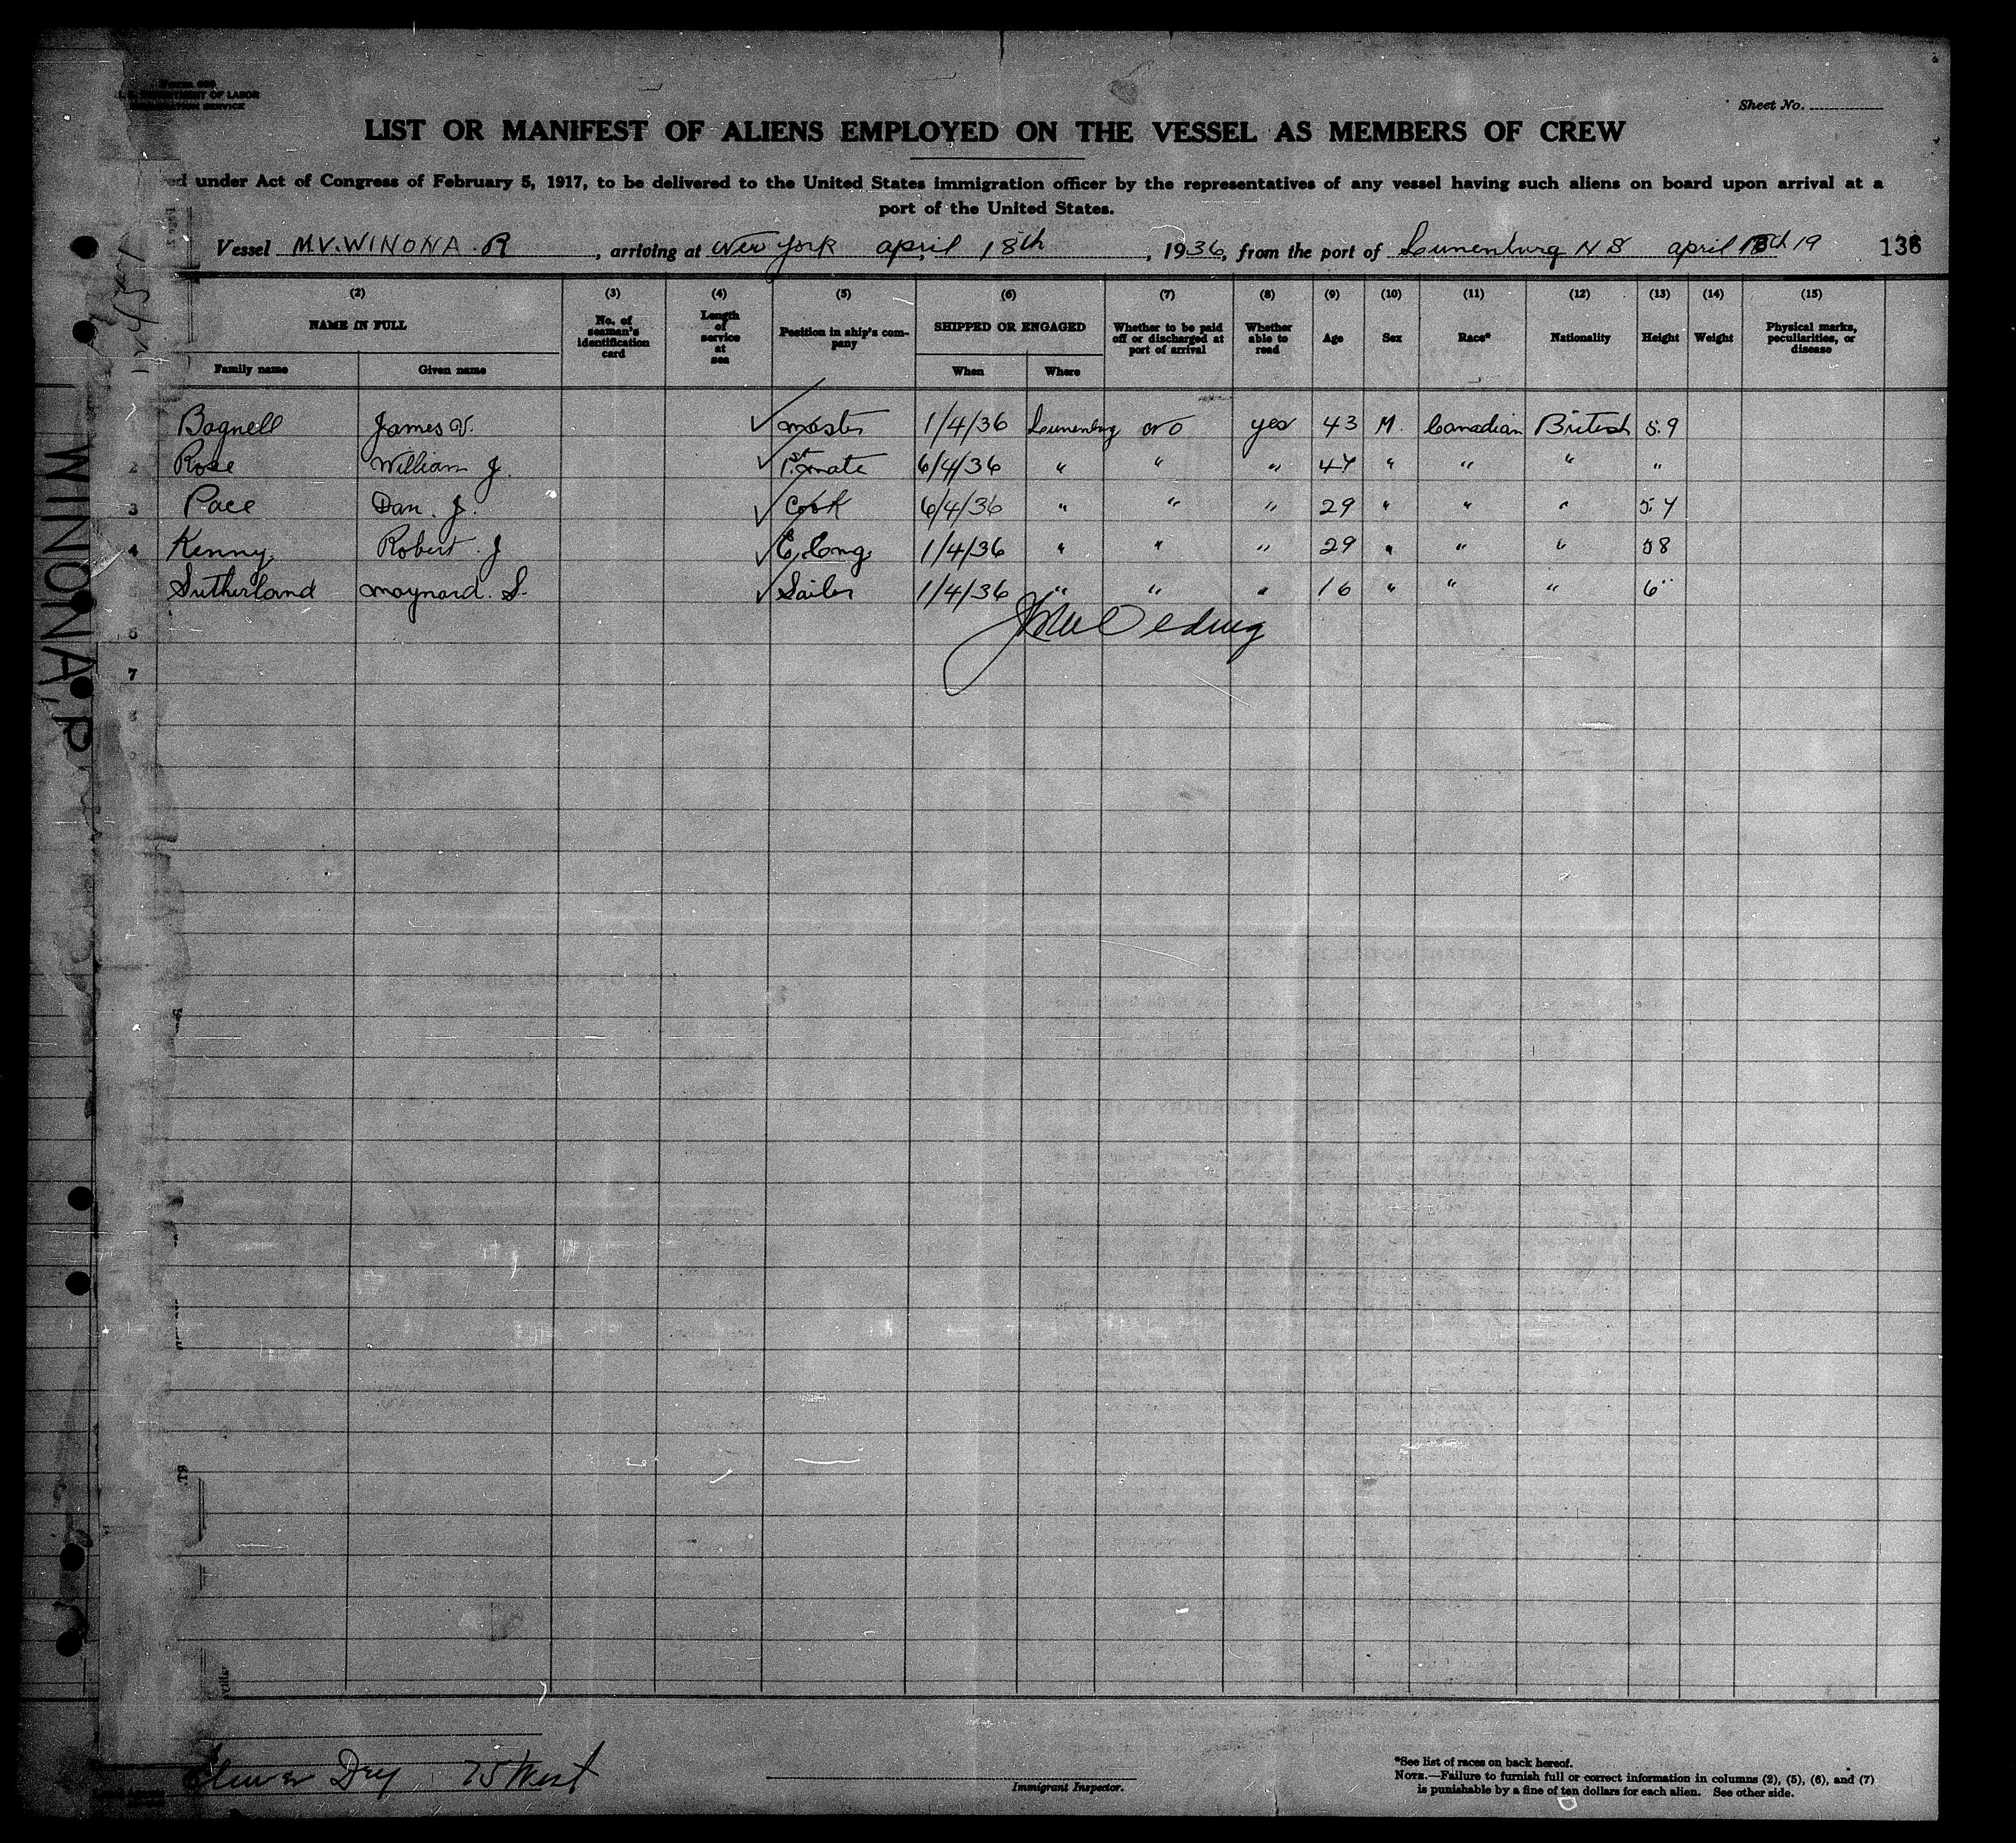 U.S. DEPARTMENT OF LABOR
IMMIGRATION SERVICE
Sheet No.
LIST OR MANIFEST OF ALIENS EMPLOYED ON THE VESSEL AS MEMBERS OF CREW
ed under Act of Congress of February 5, 1917, to be delivered to the United States immigration officer by the representatives of any vessel having such aliens on board upon arrival at a
port of the United States.
Vessel M.V. WINONA. R, arriving at New York april 18th, 1936, from the port of Lunenburg N S april 19 136
(2) (3) (4) (5) (6) (7) (8) (9) (10) (11) (12) (13) (14) (15)
NAME IN FULL No. of seaman's identification card Length of service at sea Position in ship's company SHIPPED OR ENGAGED Whether to be paid off or discharged at port of arrival Whether able to read Age Sex Race* Nationality Height Weight Physical marks, peculiarities, or disease
Family name Given name When Where
Bagnell James V. ✓ master 1/4/36 Lunenburg no yes 43 M. Canadian British 5.9
2 Rose William J. ✓ 1st mate 6/4/36 " " " 47 " " " "
3 Pace Dan. J. ✓ Cook 6/4/36 " " " 29 " " " 5.7
4 Kenny Robert. J ✓ C. Eng. 1/4/36 " " " 29 " " " 58
Sutherland maynard. S. ✓ Sailor 1/4/36 " " " 16 " " " 6"
6
7
8
WINONA, R
Dry 75 West
Immigrant Inspector.
*See list of races on back hereof.
NOTE.—Failure to furnish full or correct information in columns (2), (5), (6), and (7)
is punishable by a fine of ten dollars for each alien. See other side.